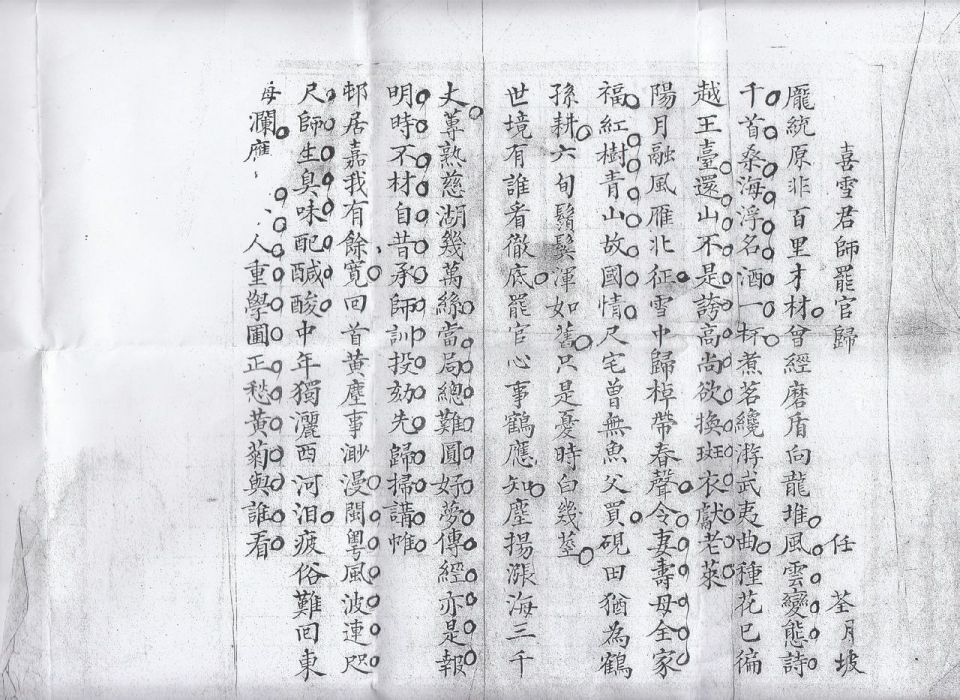 喜雪君師罷官歸
任 荃月坡
龐統原非百里才材曾經磨盾向龍堆風雲變態詩
千首桑海浮名酒一杯煮茗纔游武夷曲種花已徧
越王臺還山不是誇高尚欲換斑衣獻老萊
陽月融風雁北征雪中歸棹帶春聲令妻壽母全家
福紅樹青山故國情尺宅曾無魚父買硯田猶為鶴
孫耕六旬鬚鬢渾如舊只是憂時白幾莖
世境有誰看徹底罷官心事鶴應知塵揚漲海三千
丈蓴熟慈湖幾萬絲當局總難圓好夢傳經亦是報
明時不材自昔承師訓投劾先歸掃講帷
邨居嘉我有餘寬回首黃塵事渺漫閩粵風波連咫
尺師生臭味配鹹酸中年獨灑西河泪疲俗難回東
母瀾應 人重學圃正愁黃菊與誰看